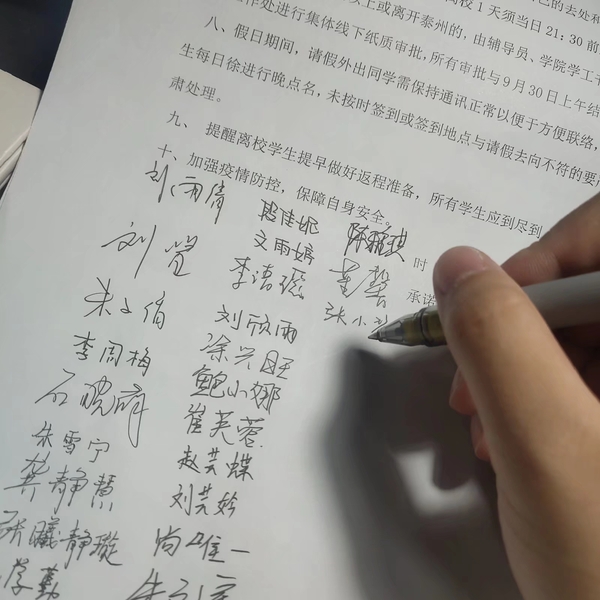 校1天须当日21:30前
作处进行集体线下纸质审批,所有审批与9月30日上午结
以上或离开泰州的,由辅导员、学院学工
八、假日期间,请假外出同学需保持通讯正常以便于方便联络,
生每日徐进行晚点名,未按时签到或签到地点与请假去向不符的要
肃处理。
九、 提醒离校学生提早做好返程准备,所有学生应到尽到
十、加强疫情防控,保障自身安全。
时
承诺
刘雨倩
文雨婷
刘莹
李
朱文倩
刘欣雨
张小
李周梅
徐兴旺
石晓萌
鲍小娜
崔芙蓉
朱雪宁
赵芸蝶
龚静慧
刘芸妗
张曦静璇
尚唯一